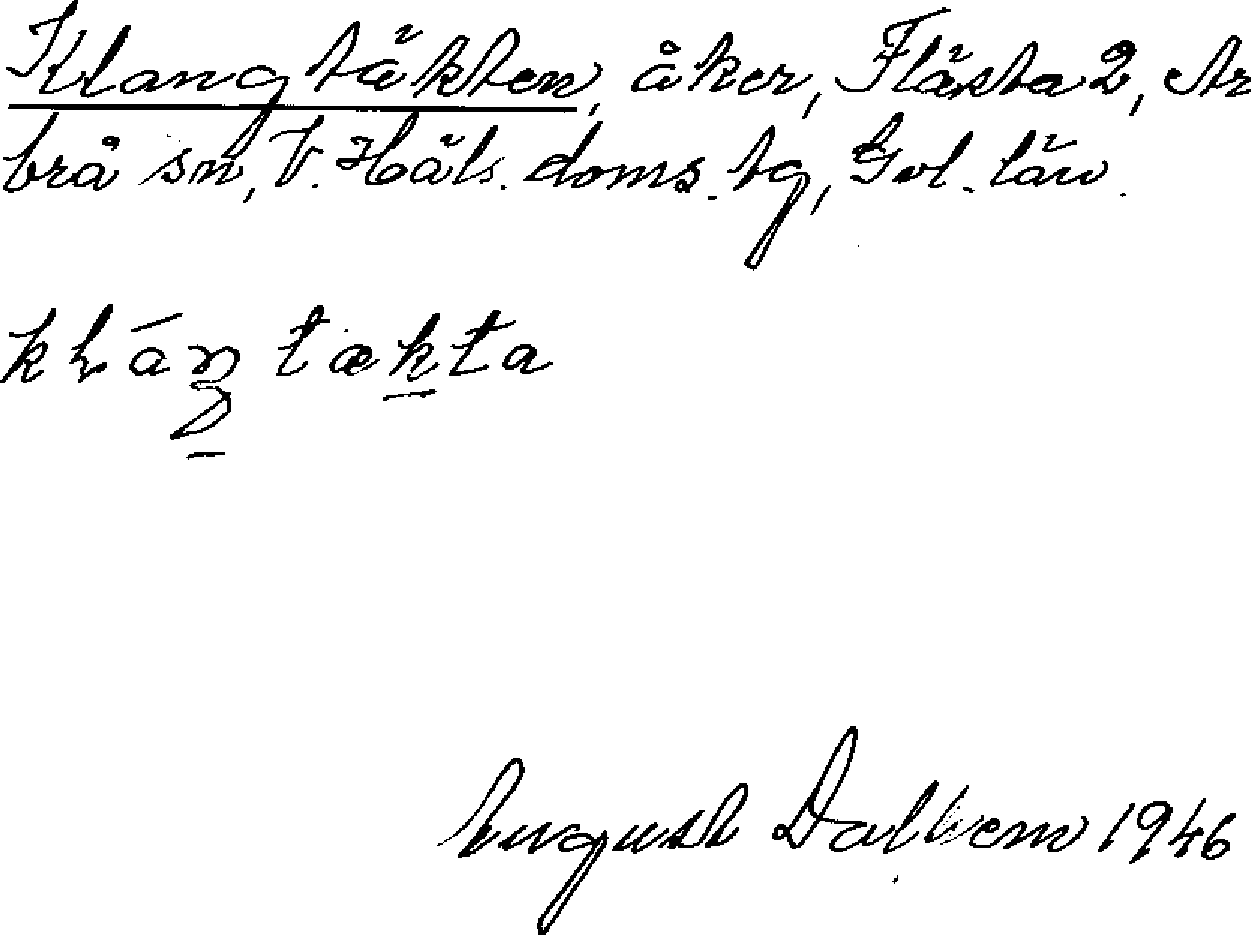 Klangtäkten, åker, Flästa 2, Ar
brå sn, V. Häls. doms. tg, Gvl. län.
kláŋ tækta
August Dalbem 1946